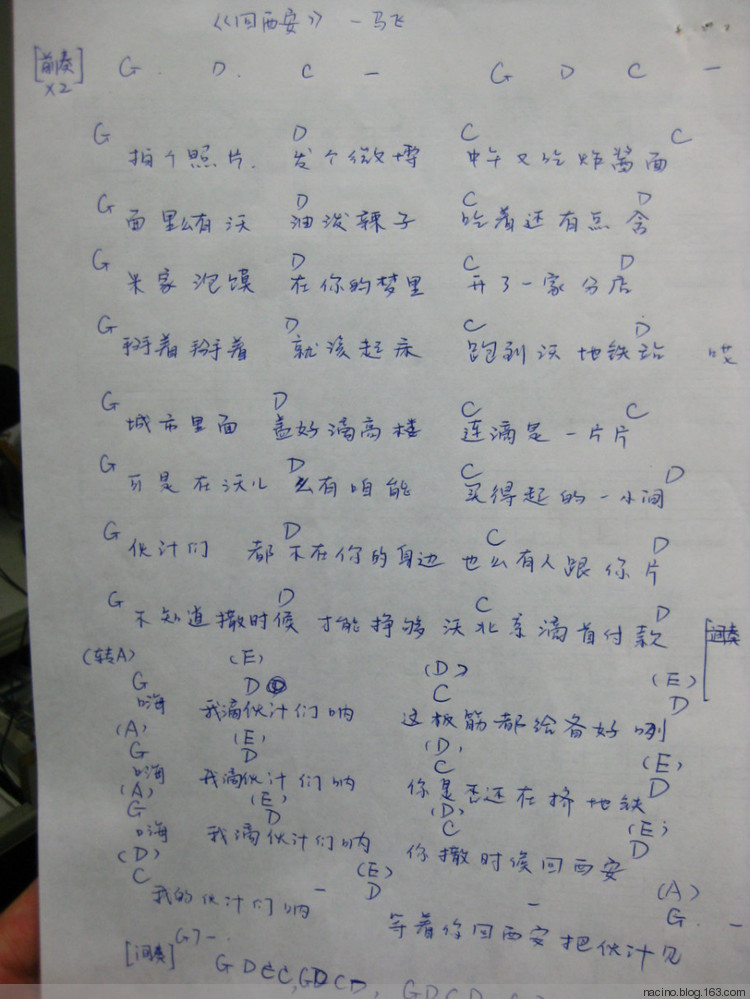 《回西安》 - 马飞
[前奏] G . D . C - G D C -
x2
G D C C
拍个照片. 发个微博 中午又吃炸酱面
G D C D
面里么有沃 油泼辣子 吃着还有点含
G D C D
米家泡馍 在你的梦里 开了一家分店
G D C D
掰着掰着 就该起床 跑到沃地铁站 哎
G D C C
城市里面 盖好滴高楼 连滴是一片片
G D C D
可是在沃儿 么有咱能 买得起的一小间
G D C D
伙计们 都不在你的身边 也么有人跟你片
G D C D
不知道撒时候 才能挣够 沃北京滴首付款 [间奏
(转A) (E) (D) (E)
G D C D
嗨 我滴伙计们呐 这板筋都给备好咧
(A) (E) (D) (E)
G D C D
嗨 我滴伙计们呐 你是否还在挤地铁
(A) (E) (D) (E)
G D C D
嗨 我滴伙计们呐 你撒时候回西安
(D) (E) (A)
C - D - G . -
我的伙计们呐 等着你回西安把伙计见
[间奏] G7-.
G D C C, G D C D, G D C D
nacino.blog.163.com